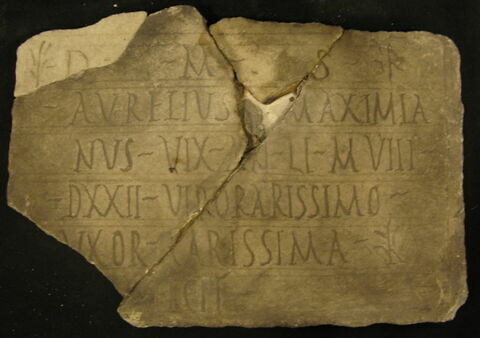 D M S
AVRELIVS MAXIMIA
NVS VIX AN LI M VIII
DXXII VIRO RARISSIMO
VXOR CARISSIMA